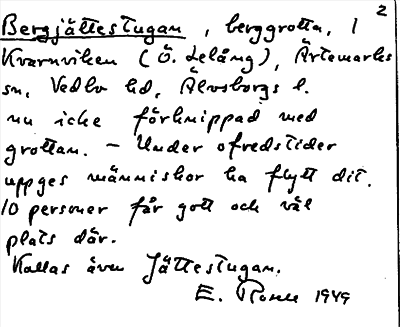 2
Bergjättestugan, berggrotta, i
Kvarnviken (Ö. Lelång), Ärtemarks
sn, Vedbo hd, Älvsborgs l.
nu icke förknippad med
grottan. – Under ofredstider
uppges människor ha flytt dit.
10 personer får gott och väl
plats där.
Kallas även Jättestugan.
E. 1949